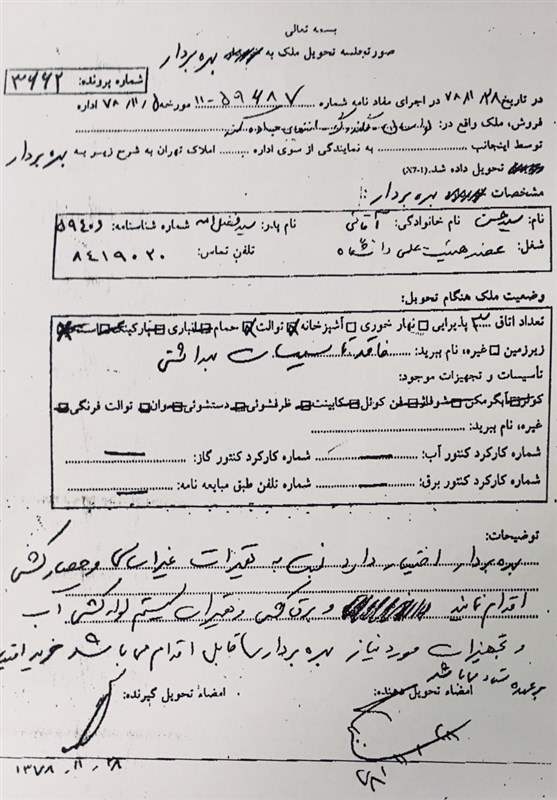 بسمه تعالی
صورتجلسه تحویل ملک به بهره بردار
شماره پرونده: ۳۶۶۲
در تاریخ ۷۸/۱۱/۲۸ در اجرای مفاد نامه شماره ۵۹۶۸۷-۱۱ مورخه ۷۸/۱۱/ اداره
فروش، ملک واقع در:
توسط اینجانب به نمایندگی از سوی اداره املاک تهران به شرح زیر به بهره بردار
تحویل داده شد.
مشخصات بهره بردار:
نام: سید حسن نام خانوادگی: آقائی نام پدر: سید فضل اله شماره شناسنامه: ۵۹۴۰۶
شغل: عضو هیئت علمی دانشگاه تلفن تماس: ۸۴۱۹۰۲۰
وضعیت ملک هنگام تحویل:
تعداد اتاق ۳ پذیرایی نهار خوری آشپزخانه توالت حمام انباری پارکینگ
زیرزمین غیره، نام ببرید: فاقد تاسیسات بهداشتی
تأسیسات و تجهیزات موجود:
کولر آبگرمکن شوفاژ فن کوئل کابینت ظرفشوئی دستشوئی وان توالت فرنگی
غیره، نام ببرید:
شماره کارکرد کنتور آب: شماره کارکرد کنتور گاز:
شماره کارکرد کنتور برق: شماره تلفن طبق مبایعه نامه:
توضیحات:
بهره بردار اختیار دارد نسبت به تغییرات غیراساسی و حصارکشی
اقدام نماید و برق کشی و تغییرات سیستم لوله کشی آب
و تجهیزات مورد نیاز بهره بردار قابل اقدام می باشد
بر عهده ستاد می باشد
امضاء تحویل دهنده: امضاء تحویل گیرنده:
۱۳۷۸/۱۱/۲۸